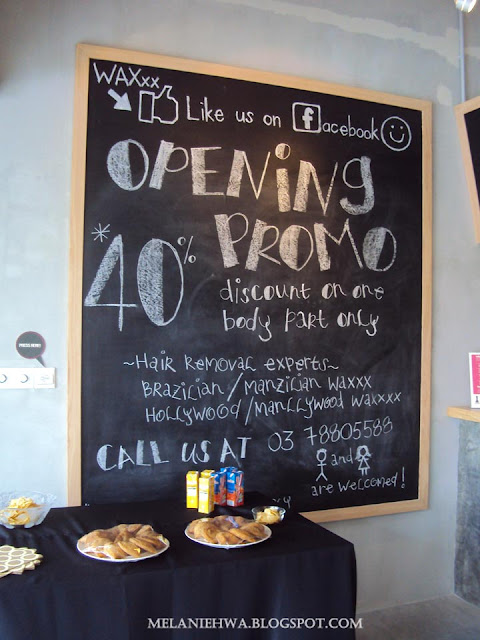 WAXxx
Like us on facebook
OPENING
PROMO
*40%
discount on one
body part only
~Hair Removal experts~
BRAZILIAN/MANZILIAN WAXXX
HOLLYWOOD/MANLLYWOOD WAXXXX
CALL US AT 03 78805588
and
are welcomed!
MELANIEHWA.BLOGSPOT.COM